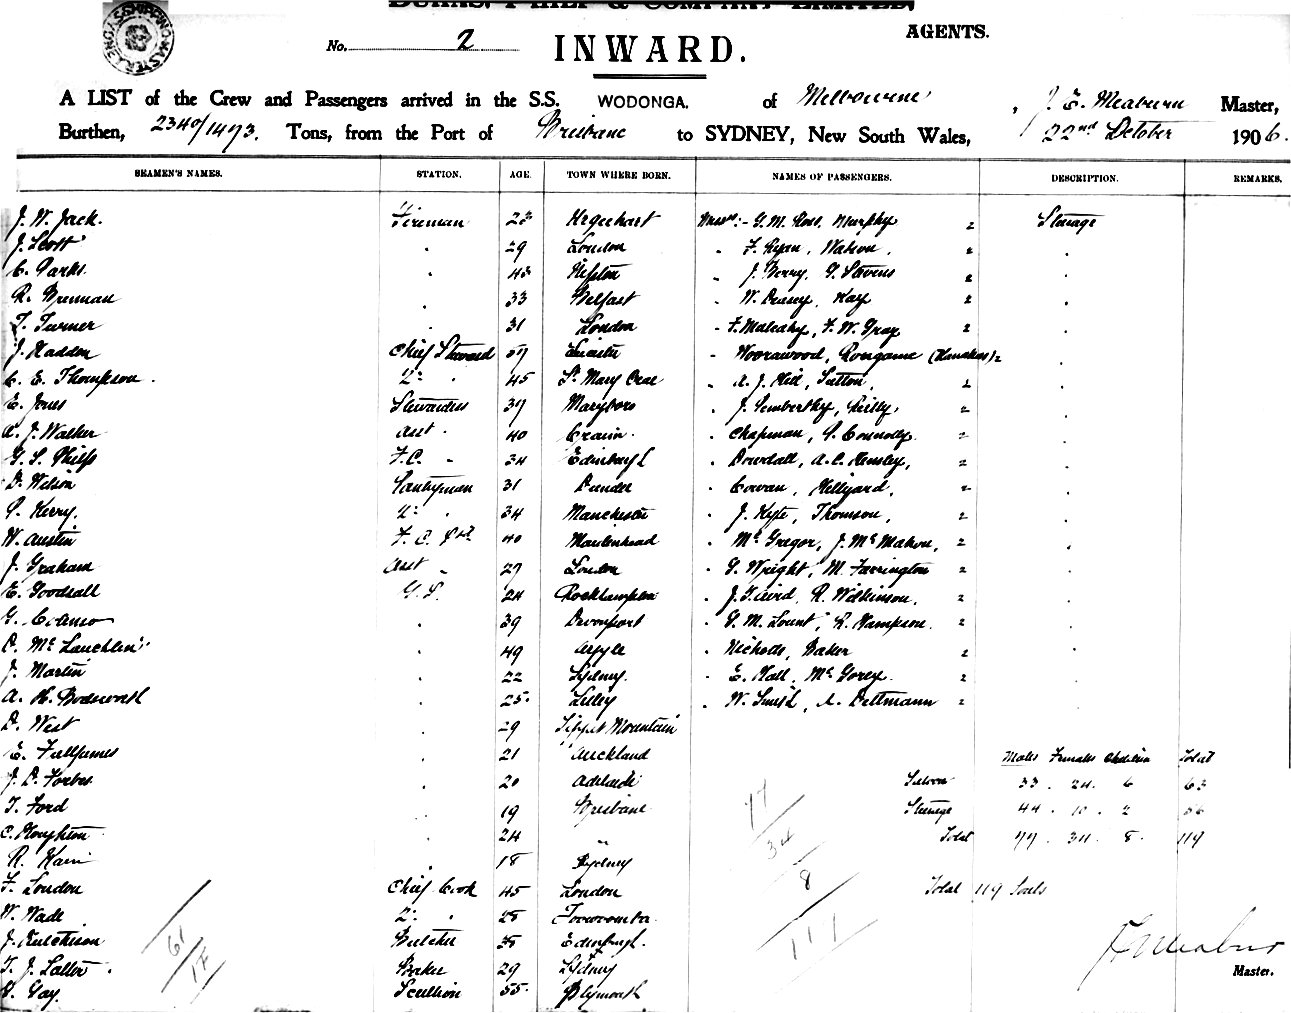 BURNS, PHILP & COMPANY LIMITED,
AGENTS.
No. 2
INWARD.
A LIST of the Crew and Passengers arrived in the S.S. WODONGA. of Melbourne, J. E. Meaburn Master,
Burthen, 2340/1473. Tons, from the Port of Brisbane to SYDNEY, New South Wales, 22nd October 1906.
SEAMEN'S NAMES. STATION. AGE. TOWN WHERE BORN. NAMES OF PASSENGERS. DESCRIPTION. REMARKS.
J. W. Jack. Fireman Murphy 2 Steerage
J. Scott 29 London F. Ryan, Watson, 2
C. Parks. 43 J. Berry, G. Stevens 2
R. Brennan 33 Belfast W. Kay 2
T. Turner 31 London F. Mulcahy, F. W. Gray 2
J. Hadden Chief Steward 2
C. E. Thompson. 2nd " 45 St Mary Cray A. J. Hill, Sutton, 2
E. Jones Stewardess 37 Maryboro J. Reilly, 2
A. J. Walker Asst. 40 Chapman, Connolly. 2
G. S. Philp F.C. " 34 Edinburgh Dowdall, A. C. Hensley, 2
D. Wilson Pantryman 31 Dundee Cowan, Hillyard, 2
P. Kerry. 2nd " 34 Manchester J. Kyte, Thomson, 2
W. Austin F. C. 40 Maidenhead McGregor, J. McMahon, 2
J. Graham Asst " 27 London G. Wright, M. Farrington 2
E. Goodsall G.S. 24 Rockhampton R. Wilkinson, 2
G. 39 Devonport G. M. Lount, R. Hampson. 2
D. McLauchlin 49 Argyle Nichods, Baker 2
J. Martin 22 Sydney. E. Hall, McGorey. 2
A. H. Bodsworth 25 W. Smith, A. Dettmann 2
D. West 29 Mountain
E. Fulljames 21 Auckland Males Females Children Total
J. D. Forbes 20 Adelaide Saloon 33. 24. 6 63
T. Ford 19 Brisbane Steerage 44. 10. 2 56
C. Houghton 24 " Total 77. 34. 8. 119
R. Kain 18 Sydney
F. London Chief Cook 45 London Total 119 Souls
W. Wade 2nd " Toowoomba
J. Hutchison Butcher Edinburgh.
T. J. Salter Baker 29 Sydney
Gay. Scullion 55 Plymouth
77/34/8/111
61/14
J. E. Meaburn
Master.